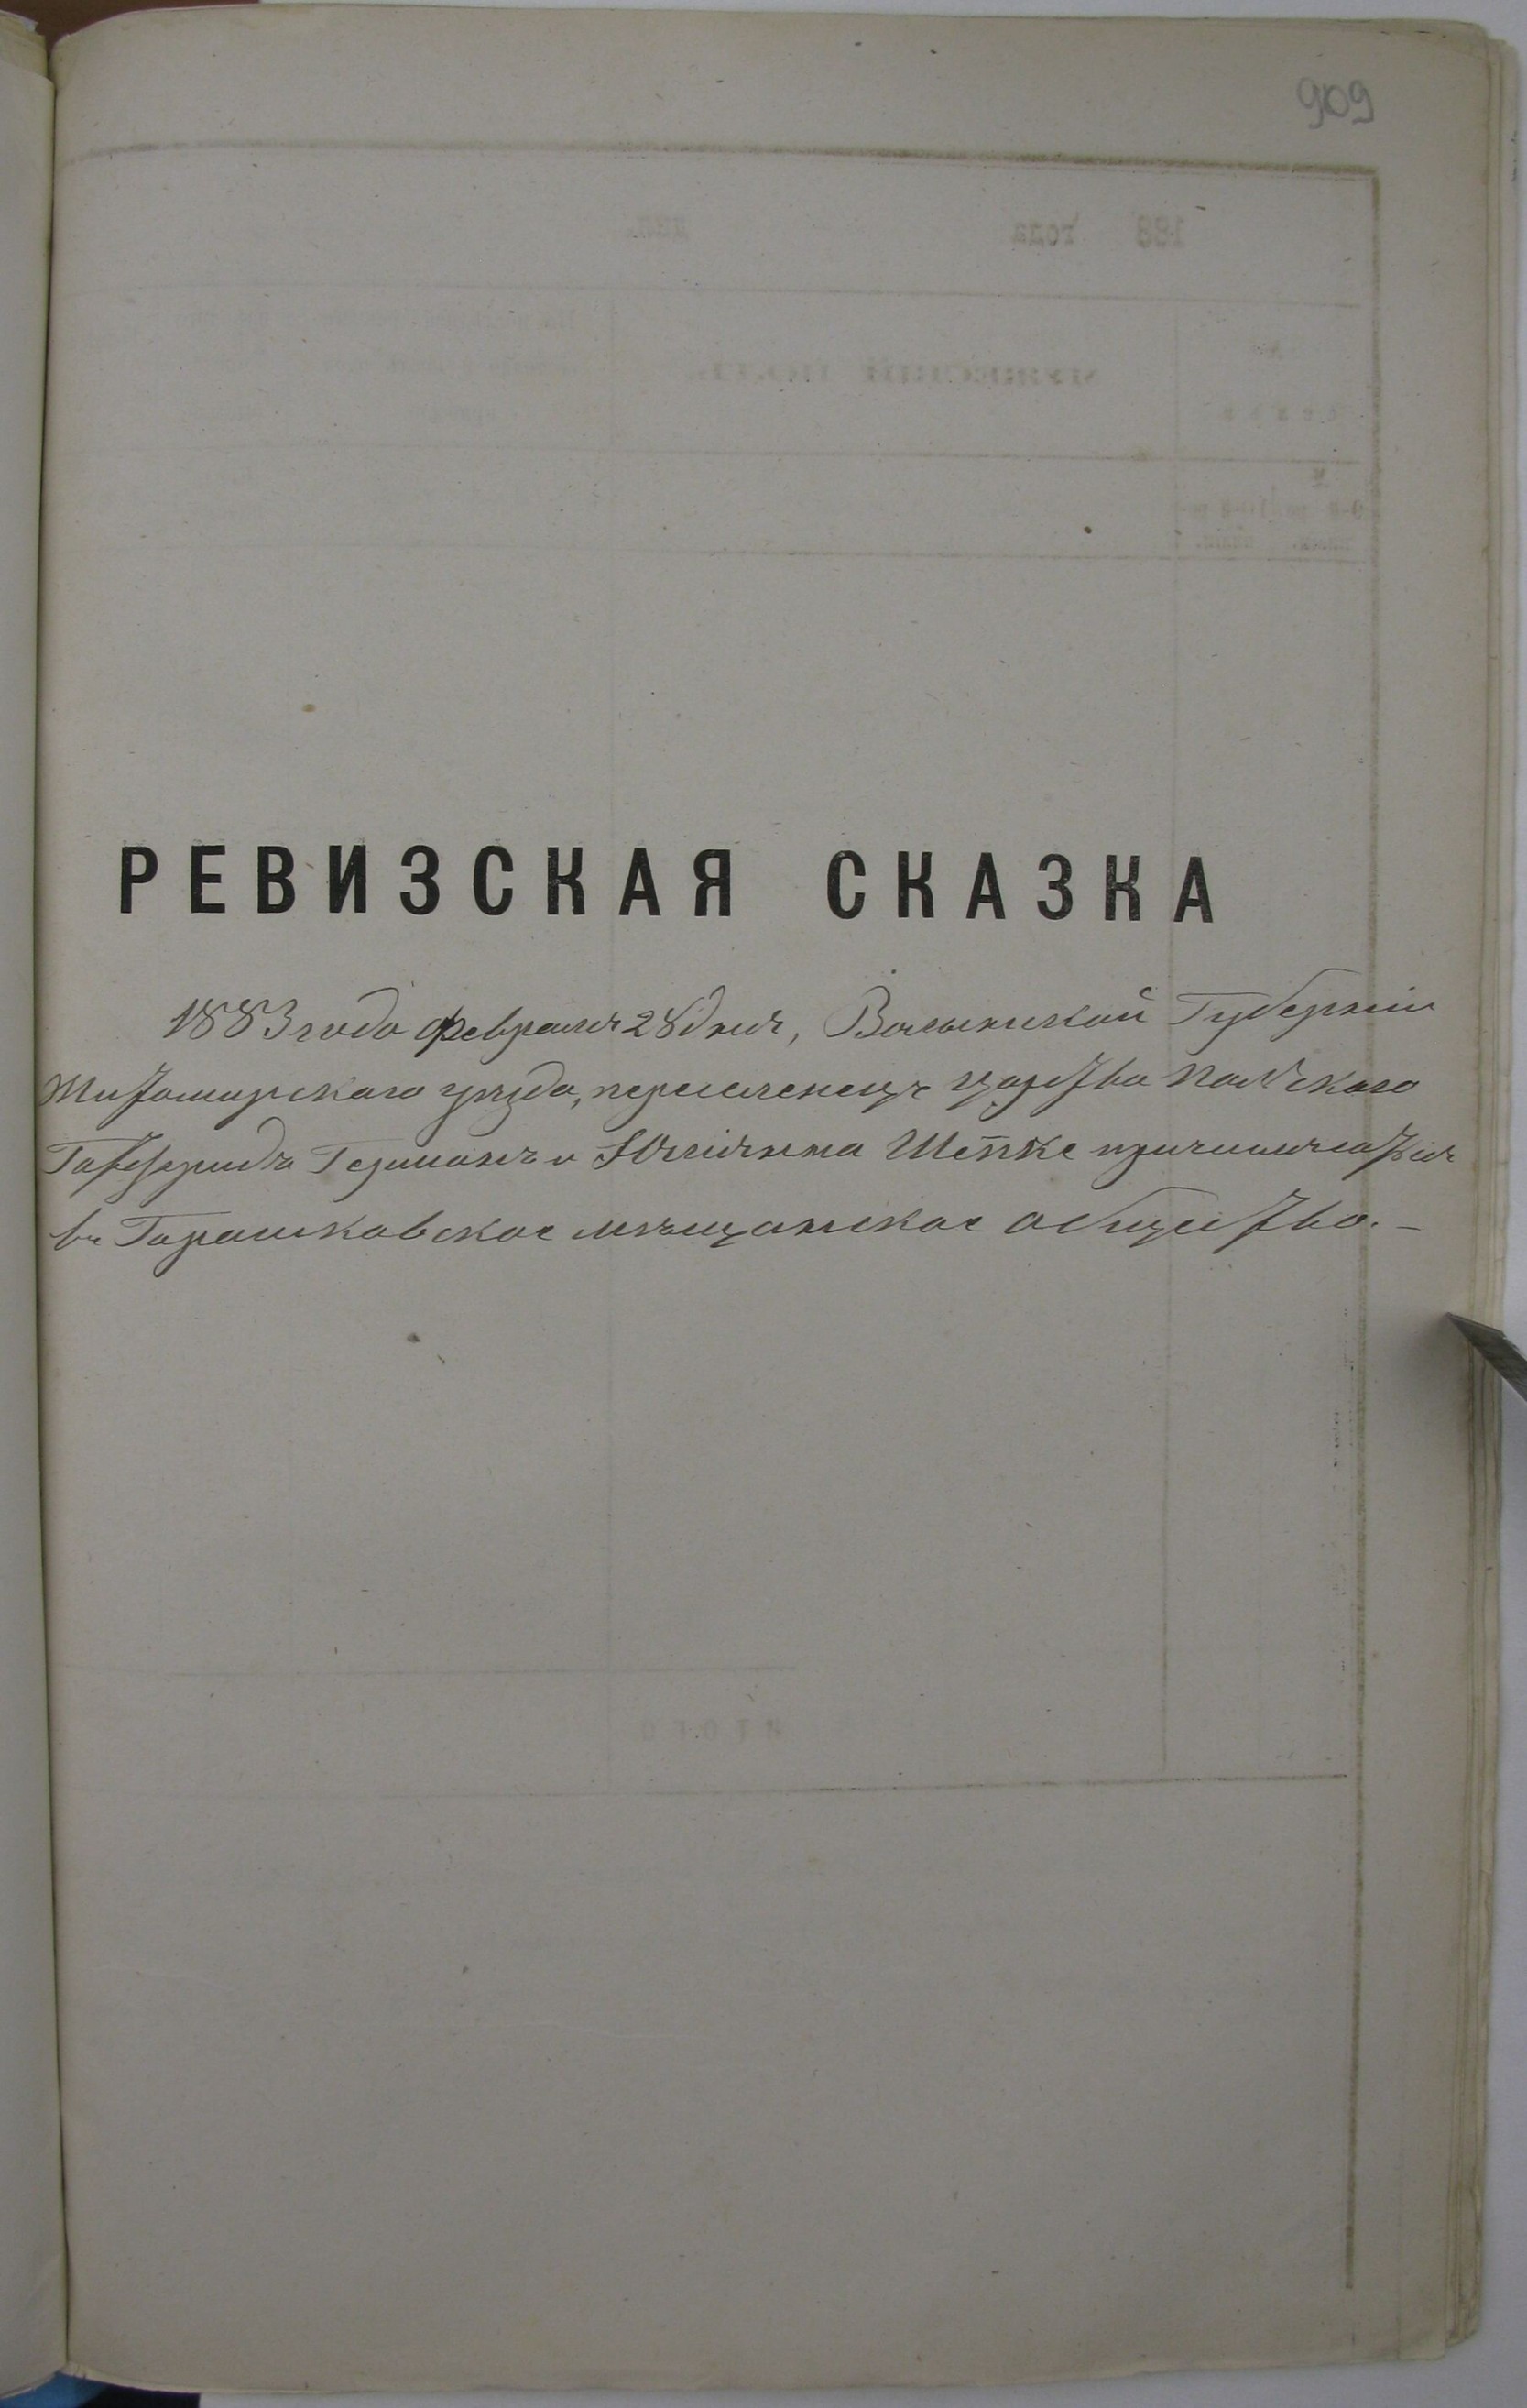 909
РЕВИЗСКАЯ СКАЗКА
1883 года февраля 28 дня, Волынской Губернии
Житомирского уезда, переселенецъ царства Польского
Готфридъ Германъ и Юлиянна Шепке причисляются
въ Горошковское мѣщанское общество. –